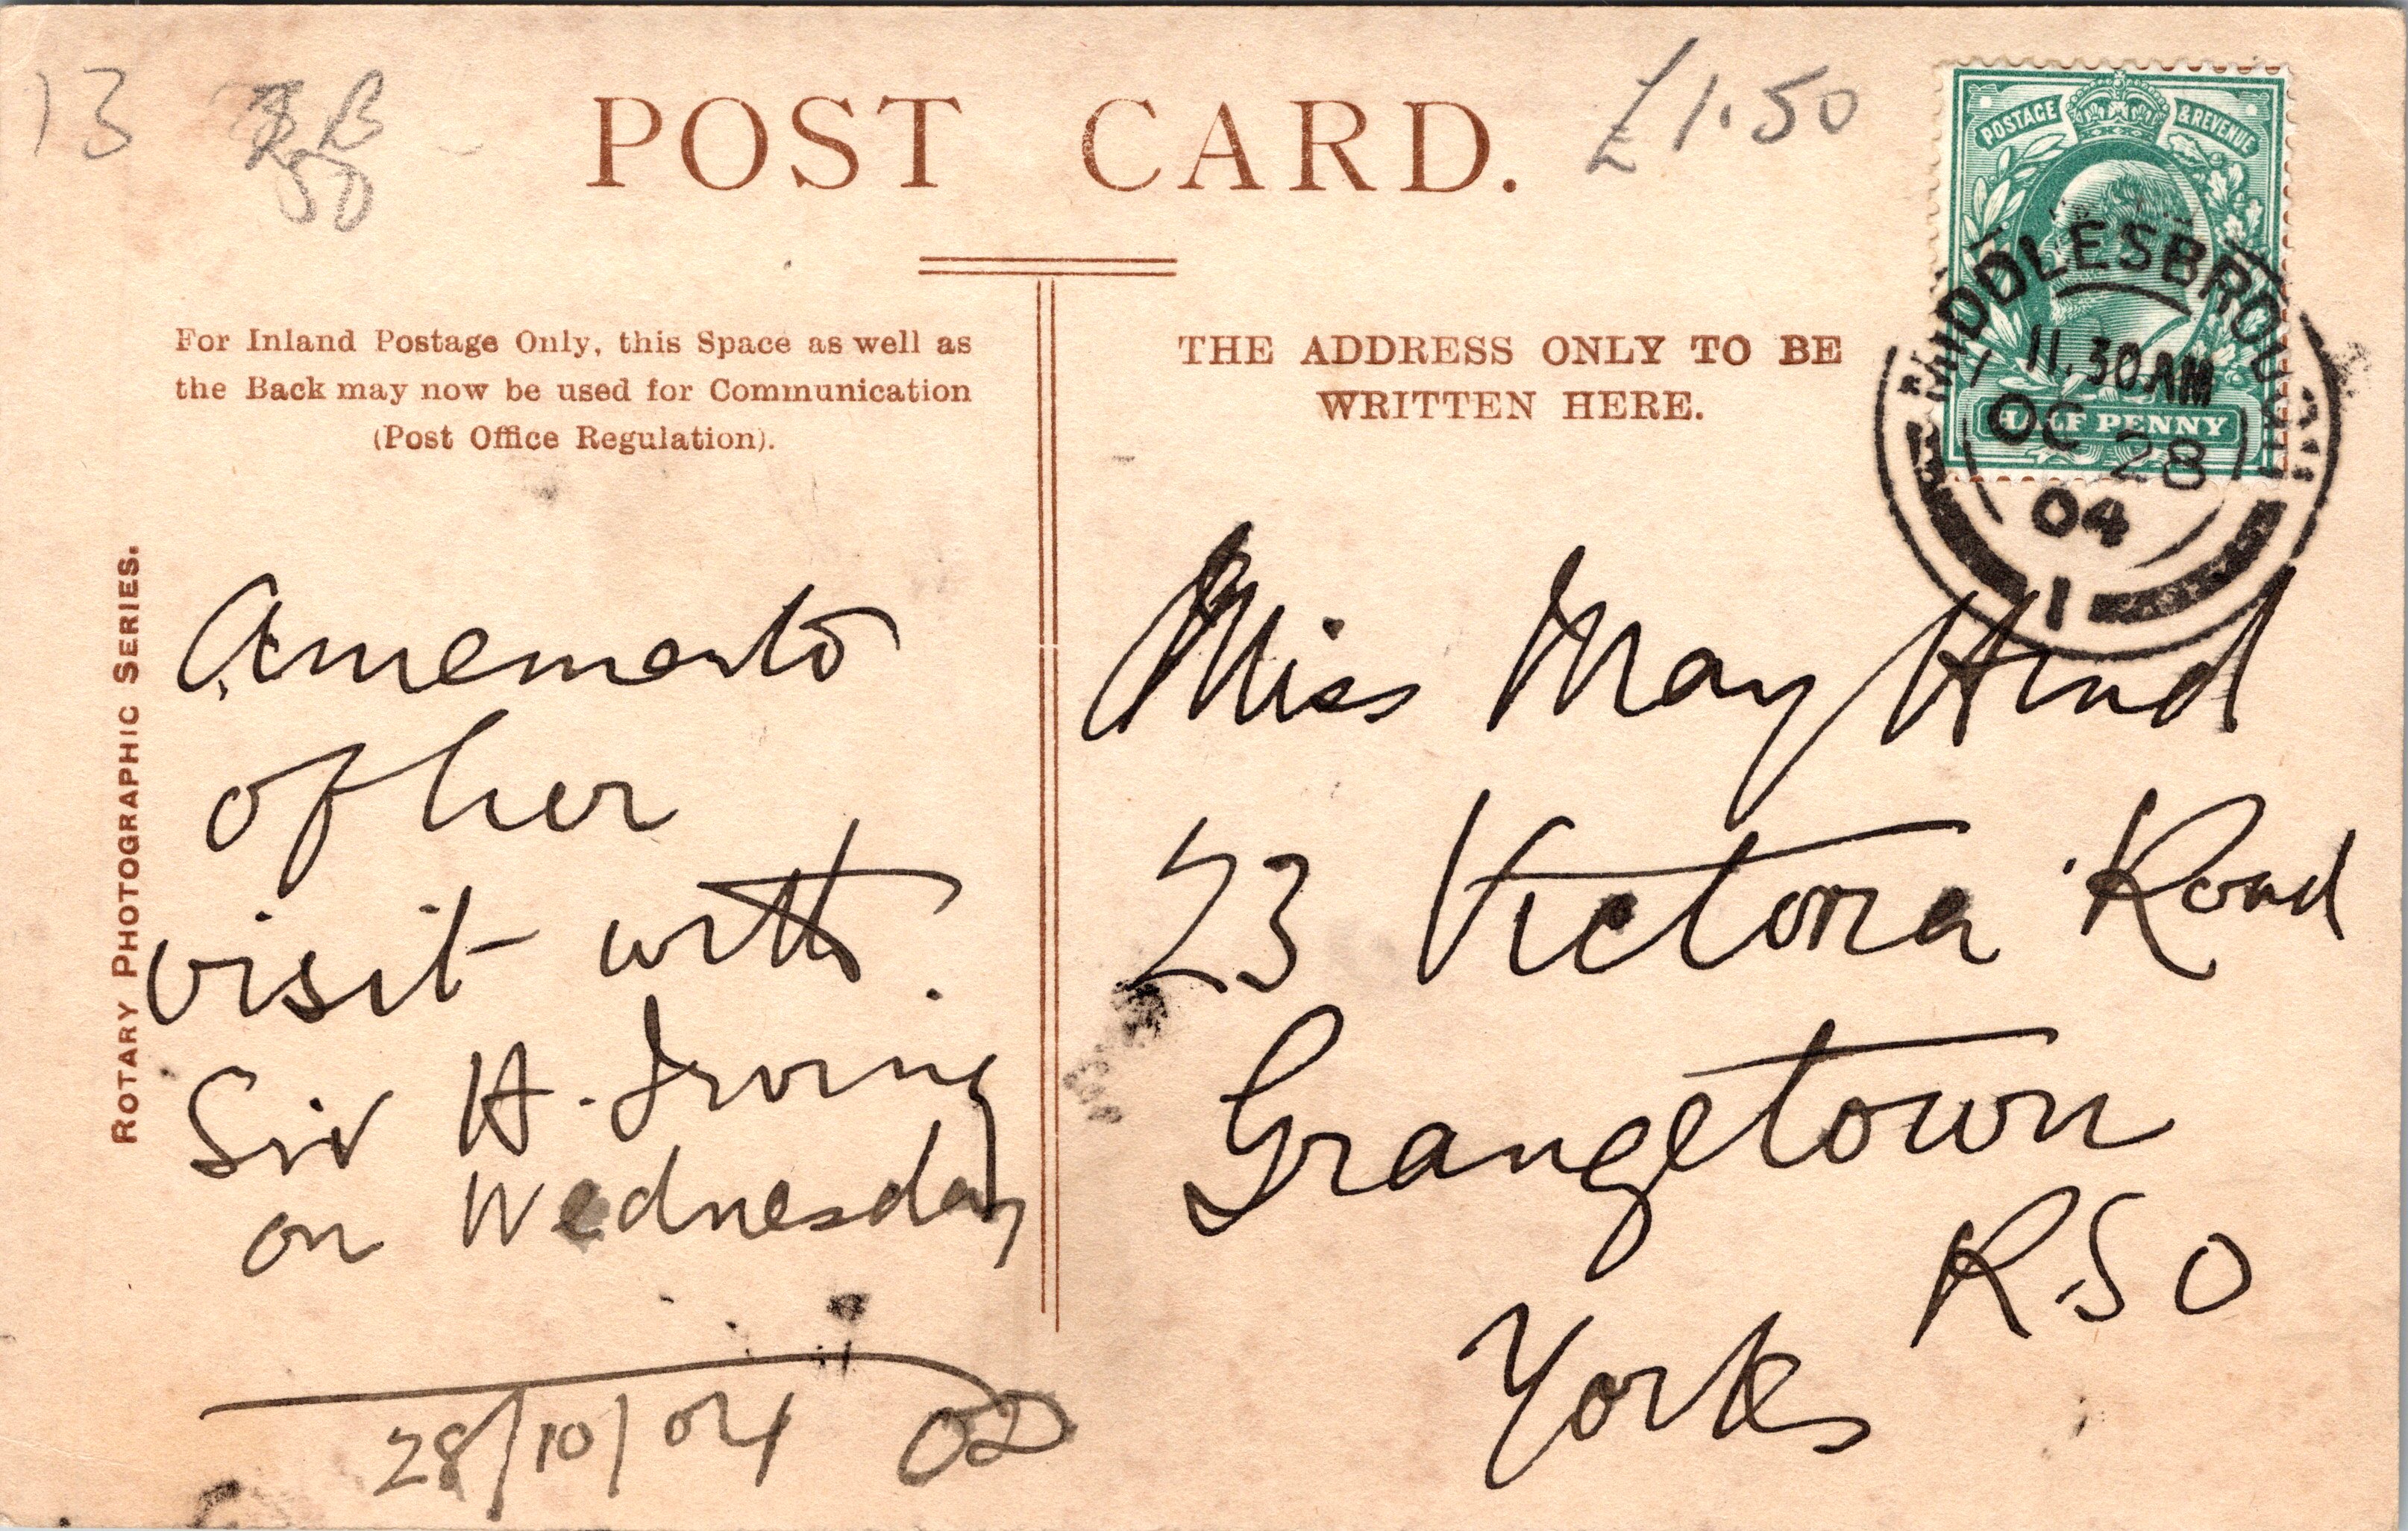 13
POST CARD.
£1.50
POSTAGE & REVENUE
HALF PENNY
MIDDLESBROUGH
11.30AM
OC 28
04
1
For Inland Postage Only, this Space as well as
the Back may now be used for Communication
(Post Office Regulation).
THE ADDRESS ONLY TO BE
WRITTEN HERE.
ROTARY PHOTOGRAPHIC SERIES.
A memento
of her
visit with
Sir H. Irving
on Wednesday
28/10/04
Miss May Hind
23 Victoria Road
Grangetown
R.S.O
Yorks